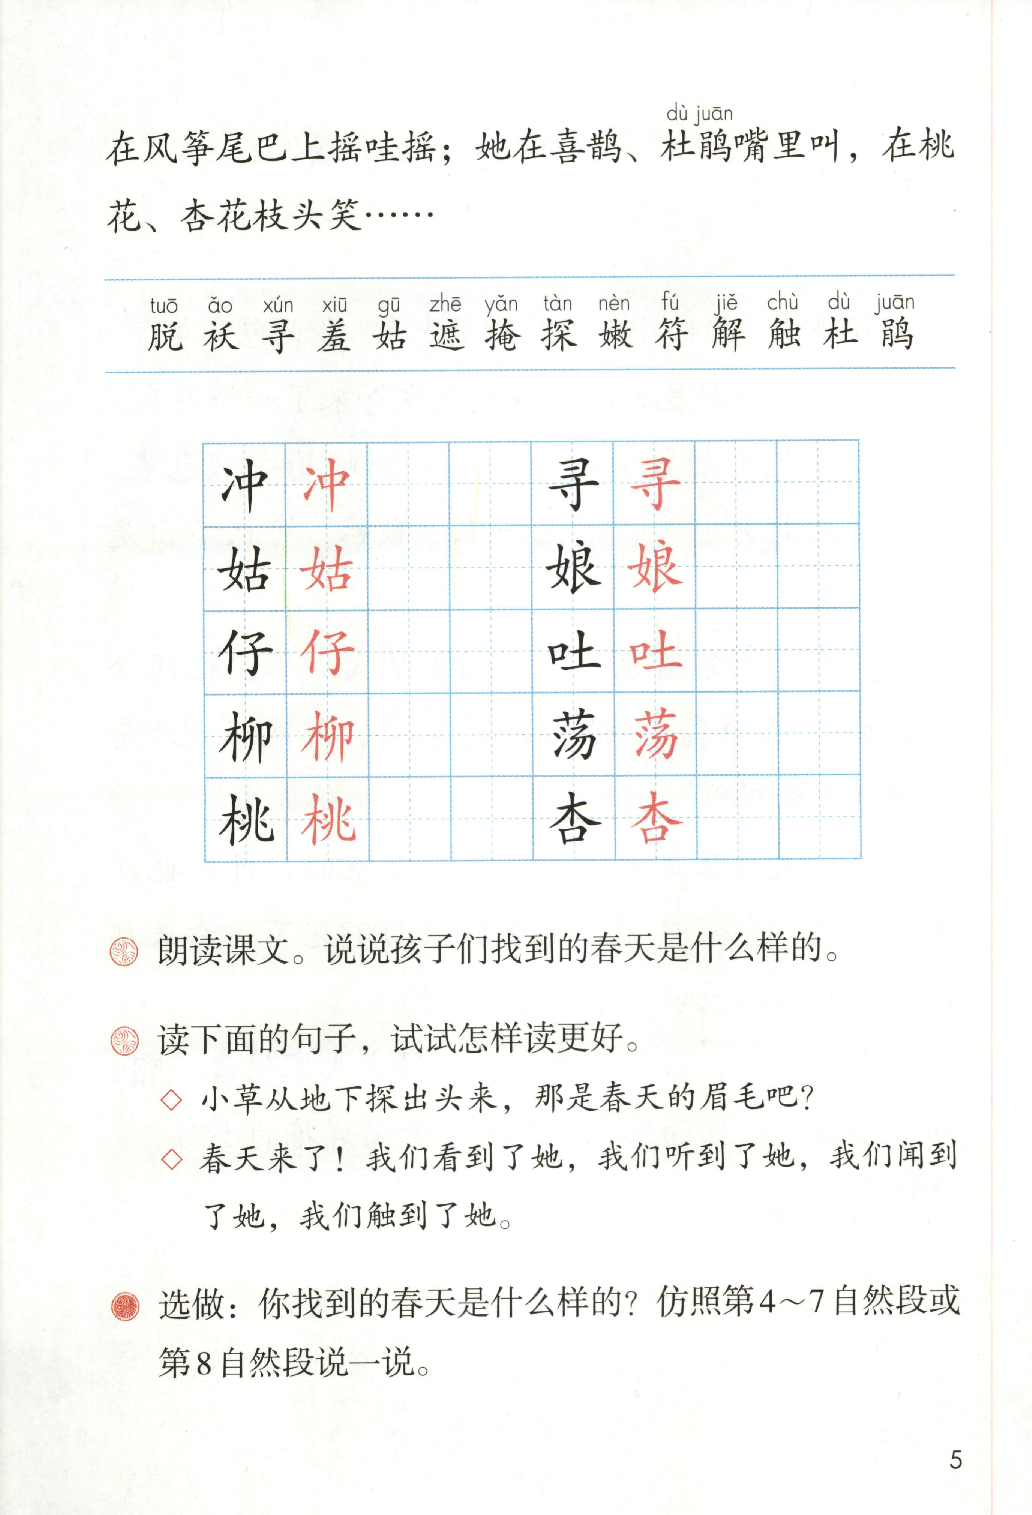 dù juān
在风筝尾巴上摇哇摇；她在喜鹊、杜鹃嘴里叫，在桃
花、杏花枝头笑……
tuō ǎo xún xiū gū zhē yǎn tàn nèn fú jiě chù dù juān
脱 袄 寻 羞 姑 遮 掩 探 嫩 符 解 触 杜 鹃
冲 冲 寻 寻
姑 姑 娘 娘
仔 仔 吐 吐
柳 柳 荡 荡
桃 桃 杏 杏
朗读课文。说说孩子们找到的春天是什么样的。
读下面的句子，试试怎样读更好。
◇ 小草从地下探出头来，那是春天的眉毛吧？
◇ 春天来了！我们看到了她，我们听到了她，我们闻到
了她，我们触到了她。
选做：你找到的春天是什么样的？仿照第4～7自然段或
第8自然段说一说。
5